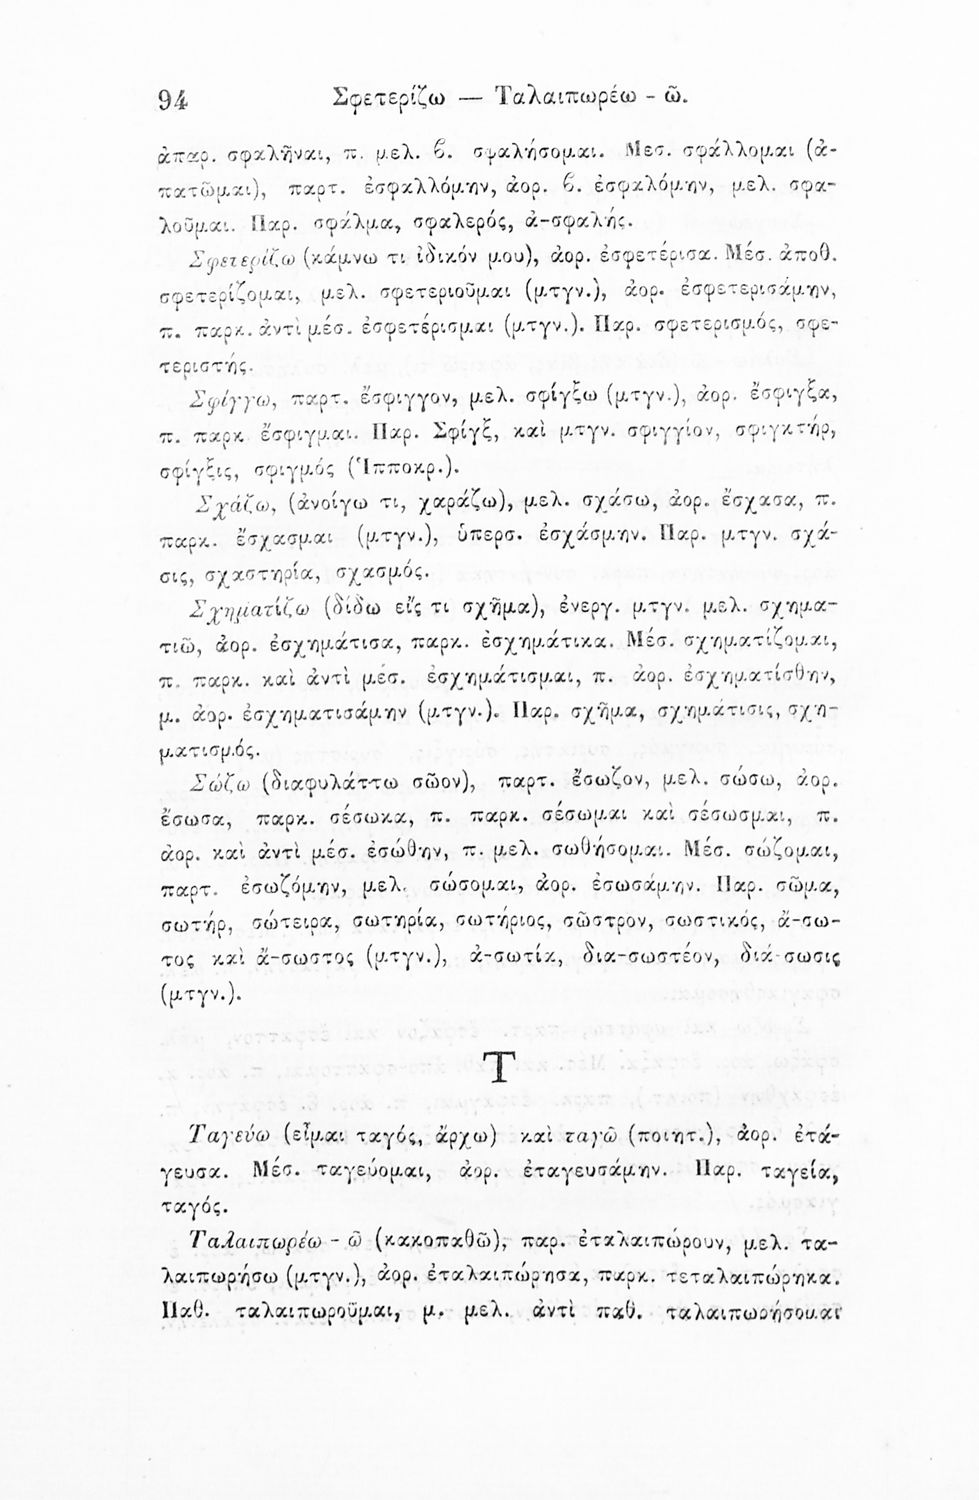 94 Σφετερίζω — Ταλαιπωρέω - ῶ.
ἀπαρ. σφαλῆναι, π. μελ. β. σφαλήσομαι. Μεσ. σφάλλομαι (ἀ-
πατῶμαι), παρτ. ἐσφαλλόμην, ἀορ. β. ἐσφαλόμην, μελ. σφα-
λοῦμαι. Παρ. σφάλμα, σφαλερός, ἀ-σφαλής.
Σφετερίζω (κάμνω τι ἰδικόν μου), ἀορ. ἐσφετέρισα. Μέσ. ἀποθ.
σφετερίζομαι, μελ. σφετεριοῦμαι (μτγν.), ἀορ. ἐσφετερισάμην,
π. παρκ. ἀντὶ μέσ. ἐσφετέρισμαι (μτγν.). Παρ. σφετερισμός, σφε-
τεριστής.
Σφίγγω, παρτ. ἔσφιγγον, μελ. σφίγξω (μτγν.), ἀορ. ἔσφιγξα,
π. παρκ ἔσφιγμαι. Παρ. Σφίγξ, καὶ μτγν. σφιγγίον, σφιγκτήρ,
σφίγξις, σφιγμός (Ἱπποκρ.).
Σχάζω, (ἀνοίγω τι, χαράζω), μελ. σχάσω, ἀορ. ἔσχασα, π.
παρκ. ἔσχασμαι (μτγν.), ὑπερσ. ἐσχάσμην. Παρ. μτγν. σχά-
σις, σχαστηρία, σχασμός.
Σχηματίζω (δίδω εἴς τι σχῆμα), ἐνεργ. μτγν. μελ. σχημα-
τιῶ, ἀορ. ἐσχημάτισα, παρκ. ἐσχημάτικα. Μέσ. σχηματίζομαι,
π. παρκ. καὶ ἀντὶ μέσ. ἐσχημάτισμαι, π. ἀορ. ἐσχηματίσθην,
μ. ἀορ. ἐσχηματισάμην (μτγν.). Παρ. σχῆμα, σχημάτισις, σχη-
ματισμός.
Σώζω (διαφυλάττω σῶον), παρτ. ἔσωζον, μελ. σώσω, ἀορ.
ἔσωσα, παρκ. σέσωκα, π. παρκ. σέσωμαι καὶ σέσωσμαι, π.
ἀορ. καὶ ἀντὶ μέσ. ἐσώθην, π. μελ. σωθήσομαι. Μέσ. σώζομαι,
παρτ. ἐσωζόμην, μελ. σώσομαι, ἀορ. ἐσωσάμην. Παρ. σῶμα,
σωτήρ, σώτειρα, σωτηρία, σωτήριος, σῶστρον, σωστικός, ἄ-σω-
τος καὶ ἄ-σωστος (μτγν.), ἀ-σωτία, δια-σωστέον, διά-σωσις
(μτγν.).
Τ
Ταγεύω (εἶμαι ταγός, ἄρχω) καὶ ταγῶ (ποιητ.), ἀορ. ἐτά-
γευσα. Μέσ. ταγεύομαι, ἀορ. ἐταγευσάμην. Παρ. ταγεία,
ταγός.
Ταλαιπωρέω - ῶ (κακοπαθῶ), παρ. ἐταλαιπώρουν, μελ. τα-
λαιπωρήσω (μτγν.), ἀορ. ἐταλαιπώρησα, παρκ. τεταλαιπώρηκα.
Παθ. ταλαιπωροῦμαι, μ. μελ. ἀντὶ παθ. ταλαιπωρήσομαι